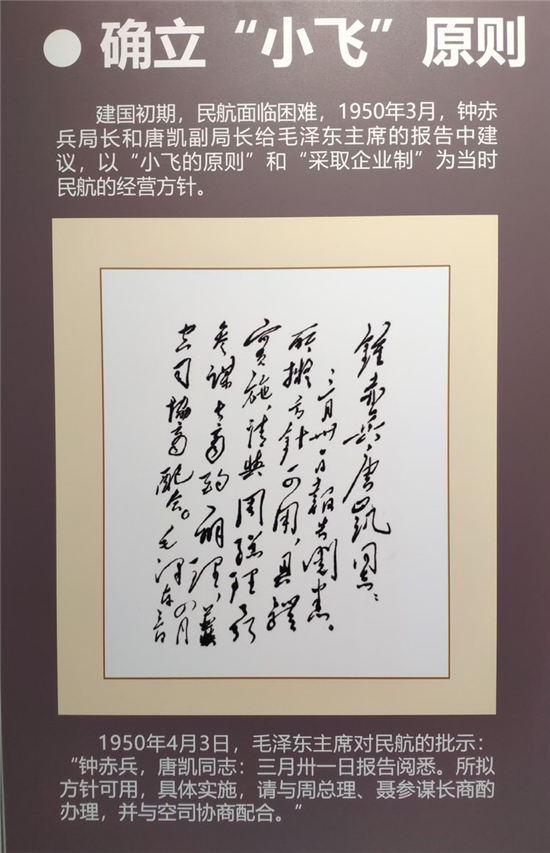 ● 确立“小飞”原则
建国初期，民航面临困难，1950年3月，钟赤
兵局长和唐凯副局长给毛泽东主席的报告中建
议，以“小飞的原则”和“采取企业制”为当时
民航的经营方针。
鍾赤兵、唐凱同志：
三月卅一日報告閱悉。
所擬方針可用，具體
實施，請與周總理、聶
參謀長商酌辦理，並與
空司協商配合。毛澤東 四月三日
1950年4月3日，毛泽东主席对民航的批示：
“钟赤兵，唐凯同志：三月卅一日报告阅悉。所拟
方针可用，具体实施，请与周总理、聂参谋长商酌
办理，并与空司协商配合。”